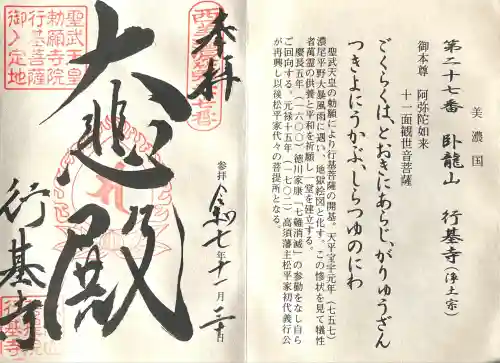 美濃国
第二十七番 臥龍山 行基寺(浄土宗)
御本尊 阿弥陀如来
十一面観世音菩薩
ごくらくは、とおきにあらじ、がりゅうざん
つきよにうかぶ、しらつゆのにわ
聖武天皇の勅願により行基菩薩の開基。天平宝字元年(七五七)
濃尾平野大暴風雨に遇い、地獄絵図と化す。この惨状を見て犠牲
者萬霊の供養と平和を祈願し一堂を建立する。
慶長五年(一六〇〇)徳川家康「七難消滅」の参勤をなし自ら
ご回向する。元禄十五年(一七〇二)高須藩主松平家初代義行公
が再興し以後松平家代々の菩提所となる。
奉拝
参拝 令和七年十一月二十日
大悲殿
行基寺
聖武天皇
勅願寺院
行基菩薩
御入定地